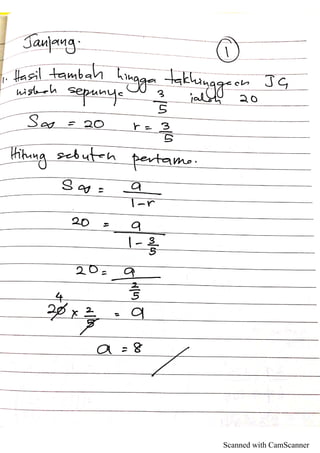 Janjang.
①
1. Hasil tambah hingga takhinggaan JG
nisbah sepunya 3/5 ialah 20
S∞ = 20 r = 3/5
Hitung sebutan pertama.
S∞ = a/1-r
20 = a/1 - 3/5
20 = a/2/5
4
20 x 2/5 = a
a = 8
Scanned with CamScanner